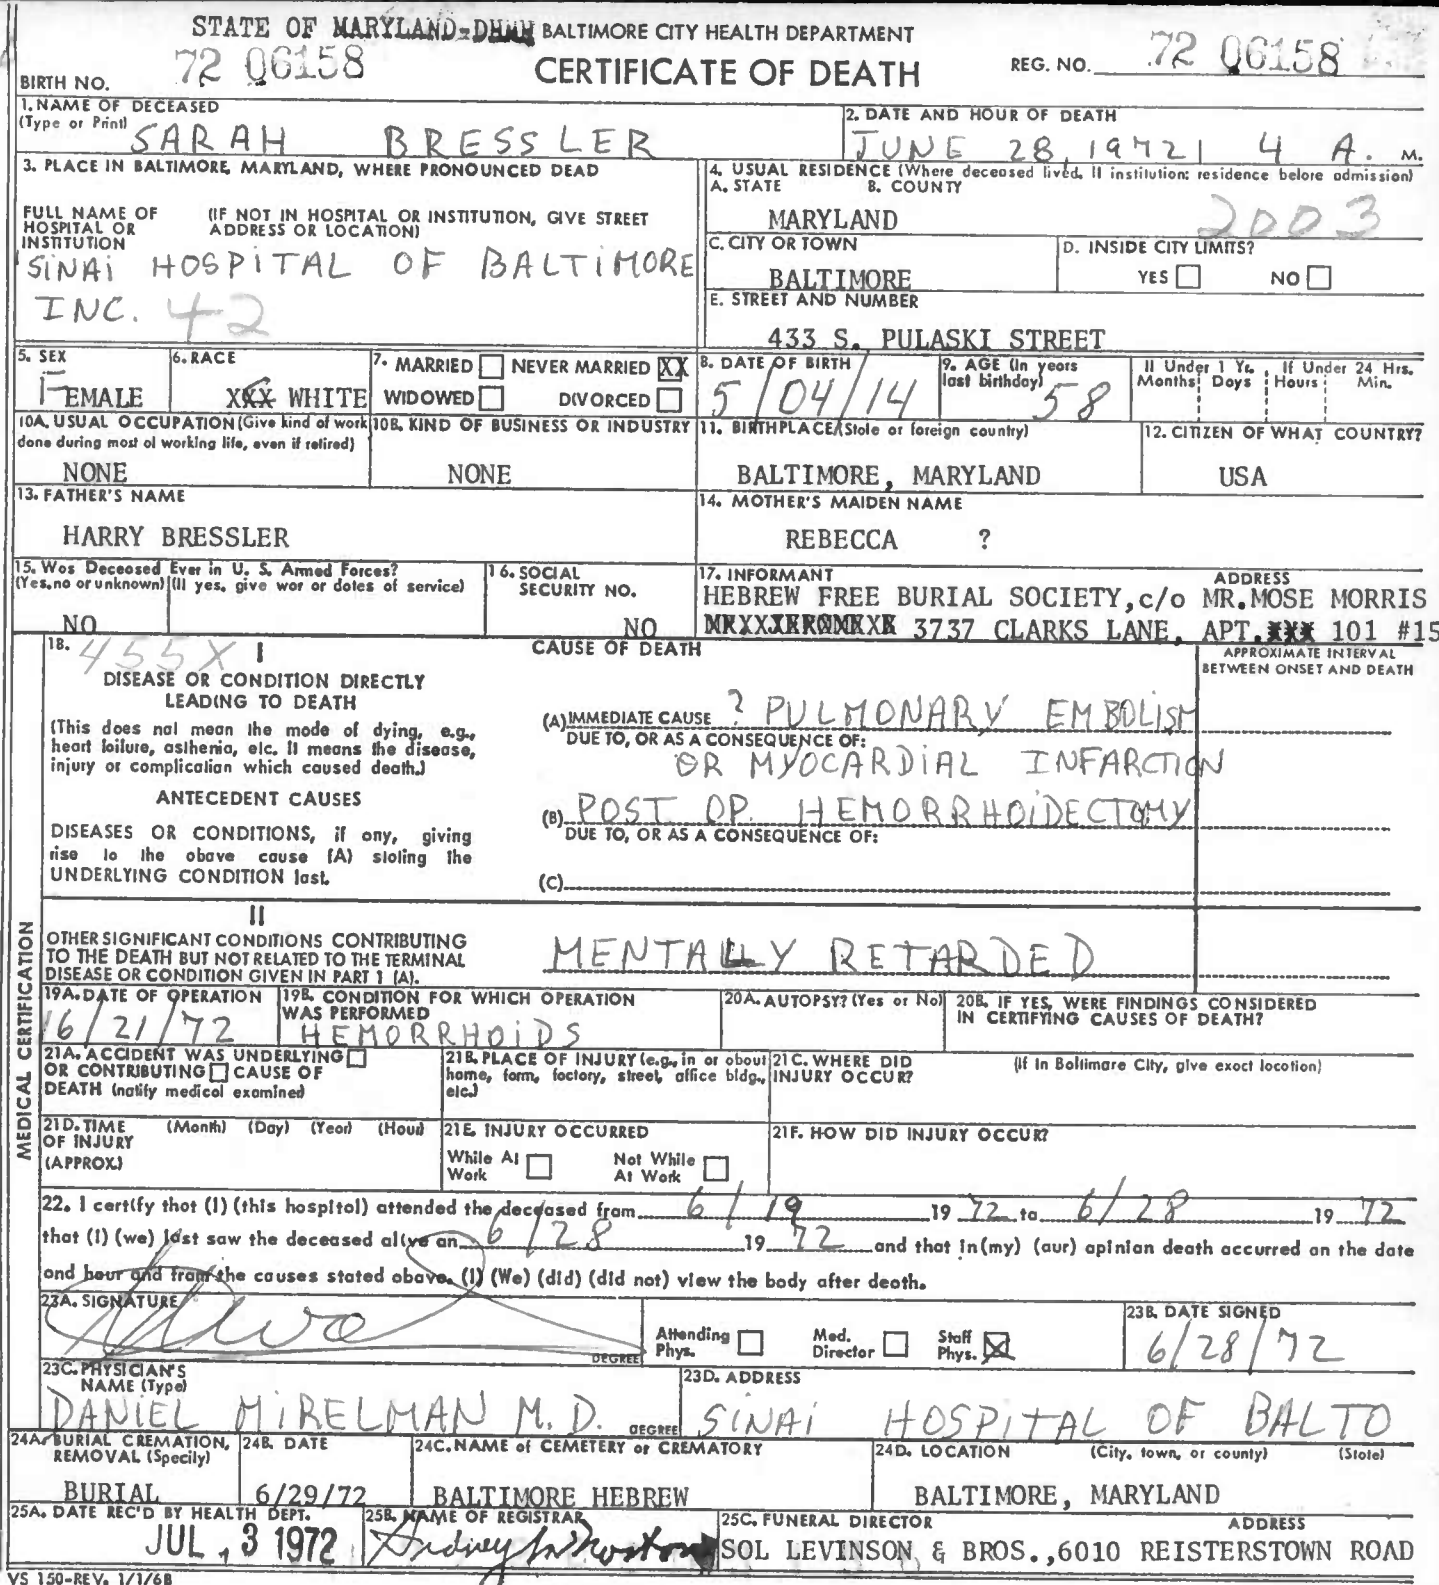 STATE OF MARYLAND-DHMH BALTIMORE CITY HEALTH DEPARTMENT
BIRTH NO. 72 06158 CERTIFICATE OF DEATH REG. NO. 72 06158
1. NAME OF DECEASED (Type or Print) SARAH BRESSLER
2. DATE AND HOUR OF DEATH JUNE 28, 1972 | 4 A. M.
3. PLACE IN BALTIMORE, MARYLAND, WHERE PRONOUNCED DEAD
FULL NAME OF HOSPITAL OR INSTITUTION (IF NOT IN HOSPITAL OR INSTITUTION, GIVE STREET ADDRESS OR LOCATION)
SINAI HOSPITAL OF BALTIMORE
INC. 42
4. USUAL RESIDENCE (Where deceased lived. If institution: residence before admission)
A. STATE B. COUNTY
MARYLAND 2003
C. CITY OR TOWN D. INSIDE CITY LIMITS?
BALTIMORE YES NO
E. STREET AND NUMBER
433 S. PULASKI STREET
5. SEX FEMALE
6. RACE XXX WHITE
7. MARRIED NEVER MARRIED XX
WIDOWED DIVORCED
8. DATE OF BIRTH 5/04/14
9. AGE (In years last birthday) 58
If Under 1 Yr. Months Days If Under 24 Hrs. Hours Min.
10A. USUAL OCCUPATION (Give kind of work done during most of working life, even if retired)
NONE
10B. KIND OF BUSINESS OR INDUSTRY
NONE
11. BIRTHPLACE (State or foreign country)
BALTIMORE, MARYLAND
12. CITIZEN OF WHAT COUNTRY?
USA
13. FATHER'S NAME
HARRY BRESSLER
14. MOTHER'S MAIDEN NAME
REBECCA ?
15. Was Deceased Ever in U. S. Armed Forces?
(Yes, no or unknown) (If yes, give war or dates of service)
NO
16. SOCIAL SECURITY NO.
NO
17. INFORMANT ADDRESS
HEBREW FREE BURIAL SOCIETY, c/o MR. MOSE MORRIS
3737 CLARKS LANE, APT. XXX 101 #15
MEDICAL CERTIFICATION
18. 455X I
DISEASE OR CONDITION DIRECTLY LEADING TO DEATH
(This does not mean the mode of dying, e.g., heart failure, asthenia, etc. It means the disease, injury or complication which caused death.)
ANTECEDENT CAUSES
DISEASES OR CONDITIONS, if any, giving rise to the above cause (A) stating the UNDERLYING CONDITION last.
CAUSE OF DEATH
APPROXIMATE INTERVAL BETWEEN ONSET AND DEATH
(A) IMMEDIATE CAUSE ? PULMONARY EMBOLISM
DUE TO, OR AS A CONSEQUENCE OF:
OR MYOCARDIAL INFARCTION
(B) POST OP. HEMORRHOIDECTOMY
DUE TO, OR AS A CONSEQUENCE OF:
(C)
II
OTHER SIGNIFICANT CONDITIONS CONTRIBUTING TO THE DEATH BUT NOT RELATED TO THE TERMINAL DISEASE OR CONDITION GIVEN IN PART 1 (A).
MENTALLY RETARDED
19A. DATE OF OPERATION 6/21/72
19B. CONDITION FOR WHICH OPERATION WAS PERFORMED HEMORRHOIDS
20A. AUTOPSY? (Yes or No)
20B. IF YES, WERE FINDINGS CONSIDERED IN CERTIFYING CAUSES OF DEATH?
21A. ACCIDENT WAS UNDERLYING OR CONTRIBUTING CAUSE OF DEATH (notify medical examiner)
21B. PLACE OF INJURY (e.g., in or about home, farm, factory, street, office bldg., etc.)
21C. WHERE DID INJURY OCCUR? (If in Baltimore City, give exact location)
21D. TIME OF INJURY (APPROX.) (Month) (Day) (Year) (Hour)
21E. INJURY OCCURRED
While At Work Not While At Work
21F. HOW DID INJURY OCCUR?
22. I certify that (I) (this hospital) attended the deceased from 6/19 19 72 to 6/28 19 72
that (I) (we) last saw the deceased alive on 6/28 19 72 and that in (my) (our) opinion death occurred on the date
and hour and from the causes stated above. (I) (We) (did) (did not) view the body after death.
23A. SIGNATURE DEGREE
Attending Phys. Med. Director Staff Phys. X
23B. DATE SIGNED
6/28/72
23C. PHYSICIAN'S NAME (Type)
DANIEL MIRELMAN M.D. DEGREE
23D. ADDRESS
SINAI HOSPITAL OF BALTO
24A. BURIAL CREMATION, REMOVAL (Specify)
BURIAL
24B. DATE
6/29/72
24C. NAME of CEMETERY or CREMATORY
BALTIMORE HEBREW
24D. LOCATION (City, town, or county) (State)
BALTIMORE, MARYLAND
25A. DATE REC'D BY HEALTH DEPT.
JUL 3 1972
25B. NAME OF REGISTRAR
25C. FUNERAL DIRECTOR ADDRESS
SOL LEVINSON & BROS., 6010 REISTERSTOWN ROAD
VS 150-REV. 1/1/68